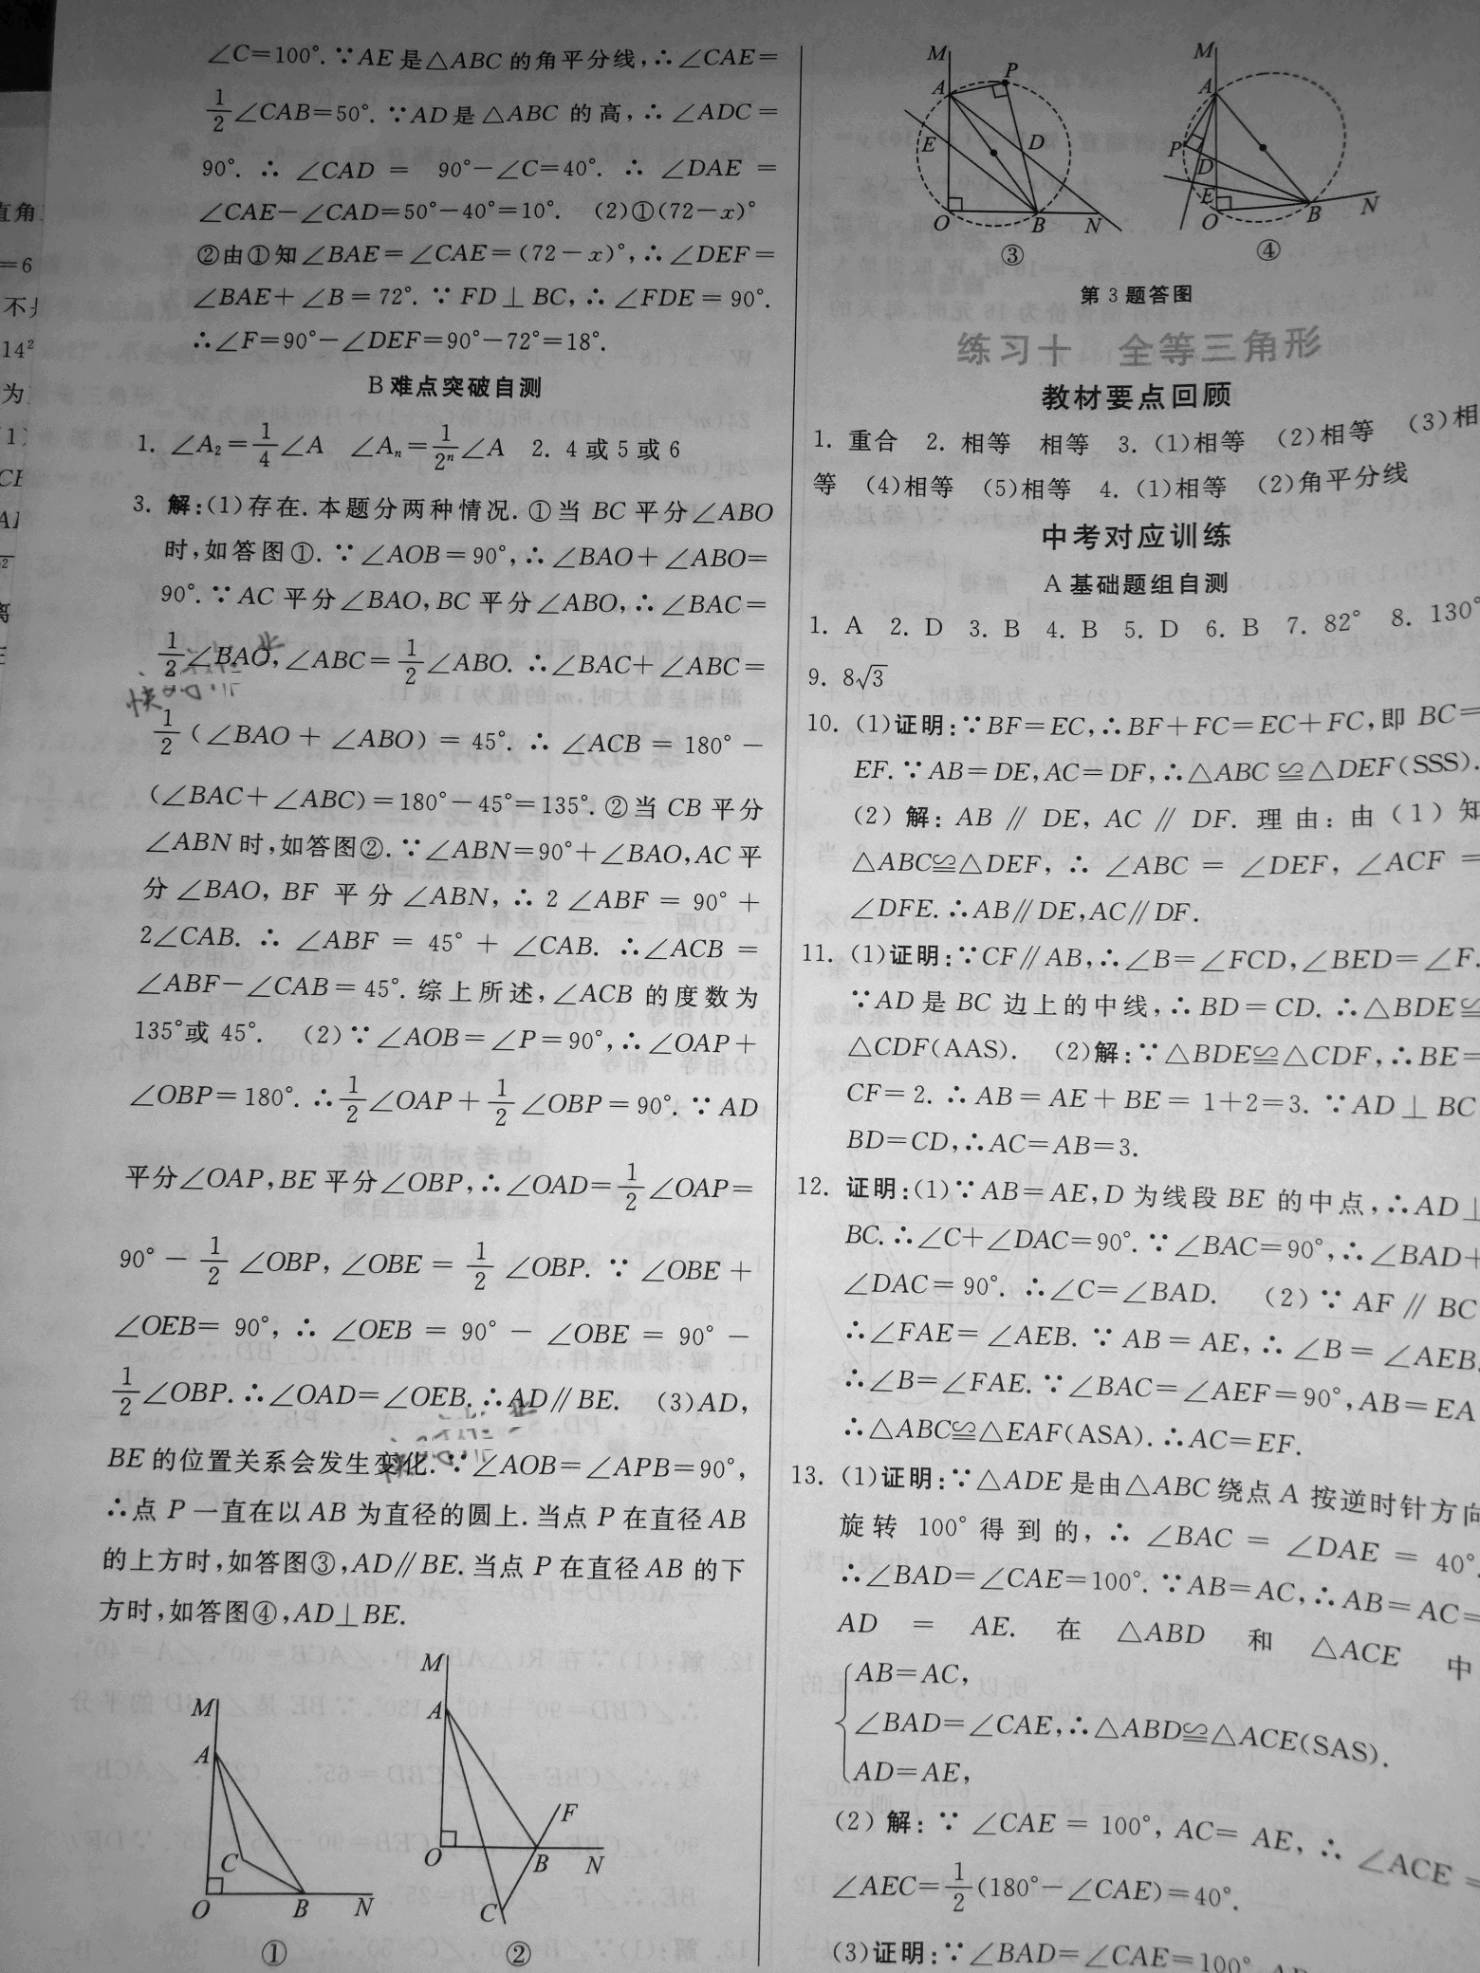 ∠C=100°.∵AE是△ABC的角平分线,∴∠CAE=
1/2∠CAB=50°.∵AD是△ABC的高,∴∠ADC=
90°.∴∠CAD=90°-∠C=40°.∴∠DAE=
∠CAE-∠CAD=50°-40°=10°. (2)①(72-x)°
②由①知∠BAE=∠CAE=(72-x)°,∴∠DEF=
∠BAE+∠B=72°.∵FD⊥BC,∴∠FDE=90°.
∴∠F=90°-∠DEF=90°-72°=18°.
B难点突破自测
1. ∠A₂=1/4∠A ∠Aₙ=1/2ⁿ∠A 2. 4或5或6
3. 解:(1)存在.本题分两种情况.①当BC平分∠ABO
时,如答图①.∵∠AOB=90°,∴∠BAO+∠ABO=
90°.∵AC平分∠BAO,BC平分∠ABO,∴∠BAC=
1/2∠BAO,∠ABC=1/2∠ABO.∴∠BAC+∠ABC=
1/2(∠BAO+∠ABO)=45°.∴∠ACB=180°-
(∠BAC+∠ABC)=180°-45°=135°.②当CB平分
∠ABN时,如答图②.∵∠ABN=90°+∠BAO,AC平
分∠BAO,BF平分∠ABN,∴2∠ABF=90°+
2∠CAB.∴∠ABF=45°+∠CAB.∴∠ACB=
∠ABF-∠CAB=45°.综上所述,∠ACB的度数为
135°或45°. (2)∵∠AOB=∠P=90°,∴∠OAP+
∠OBP=180°.∴1/2∠OAP+1/2∠OBP=90°.∵AD
平分∠OAP,BE平分∠OBP,∴∠OAD=1/2∠OAP=
90°-1/2∠OBP,∠OBE=1/2∠OBP.∵∠OBE+
∠OEB=90°,∴∠OEB=90°-∠OBE=90°-
1/2∠OBP.∴∠OAD=∠OEB.∴AD∥BE. (3)AD,
BE的位置关系会发生变化.∵∠AOB=∠APB=90°,
∴点P一直在以AB为直径的圆上.当点P在直径AB
的上方时,如答图③,AD∥BE.当点P在直径AB的下
方时,如答图④,AD⊥BE.
M A C O B N
①
M A F O B N C
②
M A P E D O B N
③
M A P D E O B N
④
第3题答图
练习十 全等三角形
教材要点回顾
1. 重合 2. 相等 相等 3. (1)相等 (2)相等 (3)相
等 (4)相等 (5)相等 4. (1)相等 (2)角平分线
中考对应训练
A基础题组自测
1. A 2. D 3. B 4. B 5. D 6. B 7. 82° 8. 130°
9. 8√3
10. (1)证明:∵BF=EC,∴BF+FC=EC+FC,即BC=
EF.∵AB=DE,AC=DF,∴△ABC≌△DEF(SSS).
(2)解:AB∥DE,AC∥DF.理由:由(1)知
△ABC≌△DEF,∴∠ABC=∠DEF,∠ACF=
∠DFE.∴AB∥DE,AC∥DF.
11. (1)证明:∵CF∥AB,∴∠B=∠FCD,∠BED=∠F.
∵AD是BC边上的中线,∴BD=CD.∴△BDE≌
△CDF(AAS). (2)解:∵△BDE≌△CDF,∴BE=
CF=2.∴AB=AE+BE=1+2=3.∵AD⊥BC
BD=CD,∴AC=AB=3.
12. 证明:(1)∵AB=AE,D为线段BE的中点,∴AD⊥
BC.∴∠C+∠DAC=90°.∵∠BAC=90°,∴∠BAD+
∠DAC=90°.∴∠C=∠BAD. (2)∵AF∥BC
∴∠FAE=∠AEB.∵AB=AE,∴∠B=∠AEB.
∴∠B=∠FAE.∵∠BAC=∠AEF=90°,AB=EA
∴△ABC≌△EAF(ASA).∴AC=EF.
13. (1)证明:∵△ADE是由△ABC绕点A按逆时针方向
旋转100°得到的,∴∠BAC=∠DAE=40°.
∴∠BAD=∠CAE=100°.∵AB=AC,∴AB=AC=
AD=AE.在△ABD和△ACE中
AB=AC,
∠BAD=∠CAE,∴△ABD≌△ACE(SAS).
AD=AE,
(2)解:∵∠CAE=100°,AC=AE,∴∠ACE=
∠AEC=1/2(180°-∠CAE)=40°.
(3)证明:∵∠BAD=∠CAE=100°
直角
=6
14²
为